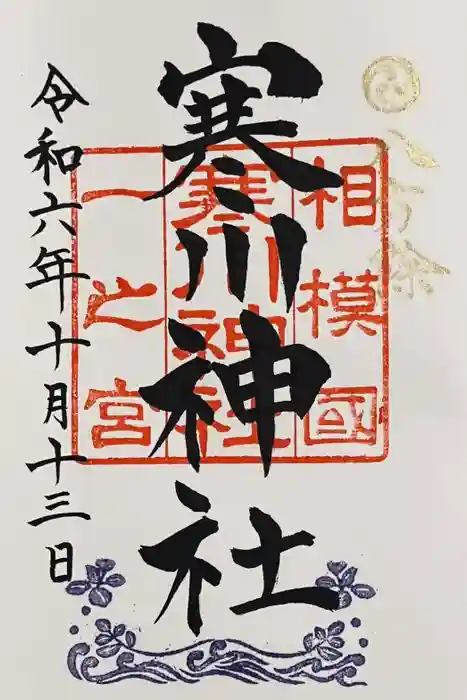 八方除
相模國
寒川神社
一之宮
寒川神社
令和六年十月十三日